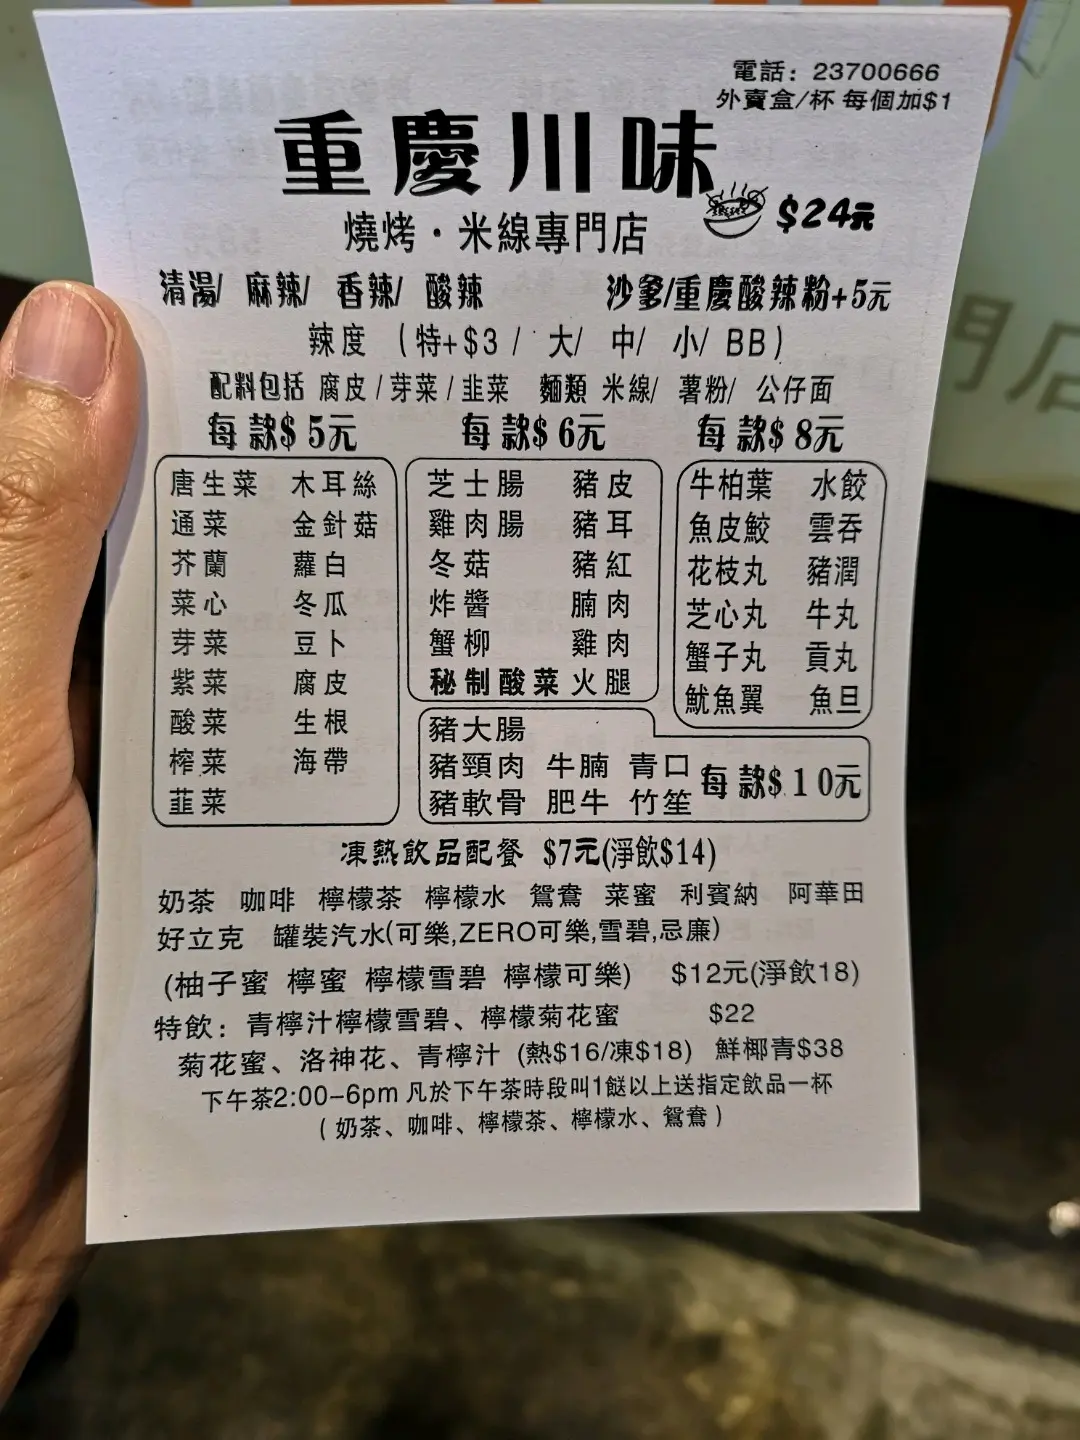 電話：23700666
外賣盒/杯 每個加$1
重慶川味
燒烤·米線專門店 $24元
清湯/ 麻辣/ 香辣/ 酸辣 沙爹/重慶酸辣粉+5元
辣度 （特+$3 / 大/ 中/ 小/ BB）
配料包括 腐皮/芽菜/韭菜 麵類 米線/ 薯粉/ 公仔面
每款$5元 每款$6元 每款$8元
唐生菜 木耳絲 芝士腸 豬皮 牛柏葉 水餃
通菜 金針菇 雞肉腸 豬耳 魚皮鮫 雲吞
芥蘭 蘿白 冬菇 豬紅 花枝丸 豬潤
菜心 冬瓜 炸醬 腩肉 芝心丸 牛丸
芽菜 豆卜 蟹柳 雞肉 蟹子丸 貢丸
紫菜 腐皮 秘制酸菜 火腿 魷魚翼 魚旦
酸菜 生根 豬大腸
榨菜 海帶 豬頸肉 牛腩 青口 每款$10元
韮菜 豬軟骨 肥牛 竹笙
凍熱飲品配餐 $7元(淨飲$14)
奶茶 咖啡 檸檬茶 檸檬水 鴛鴦 菜蜜 利賓納 阿華田
好立克 罐裝汽水(可樂,ZERO可樂,雪碧,忌廉)
(柚子蜜 檸蜜 檸檬雪碧 檸檬可樂) $12元(淨飲18)
特飲：青檸汁檸檬雪碧、檸檬菊花蜜 $22
菊花蜜、洛神花、青檸汁 (熱$16/凍$18) 鮮椰青$38
下午茶2:00-6pm 凡於下午茶時段叫1餸以上送指定飲品一杯
（奶茶、咖啡、檸檬茶、檸檬水、鴛鴦）
門店